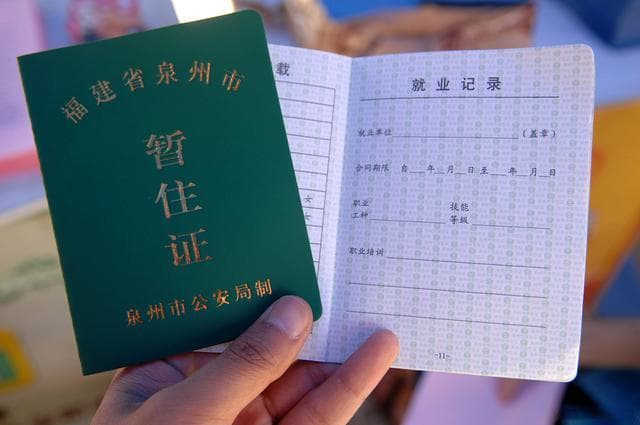 福建省泉州市
暂住证
泉州市公安局制
载
女
女
就业记录
就业单位（盖章）
合同期限 自 年 月 日至 年 月 日
职业工种 技能等级
职业培训
-11-